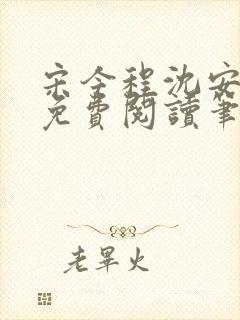 宋今程沈安
免費閱讀筆
老畢火